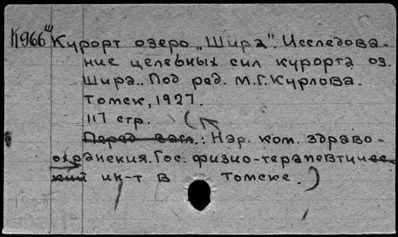 К966ш Курорт озеро „Шира“. Исследова-
ние целебных сил курорта оз.
Шира.. Под ред. М.Г.Курлова.
Томск, 1927.
117 стр.
Перед загл.: Нар. ком. здраво-
охранения. Гос. физио-терапевтичес-
кий ин-т в Томске.)